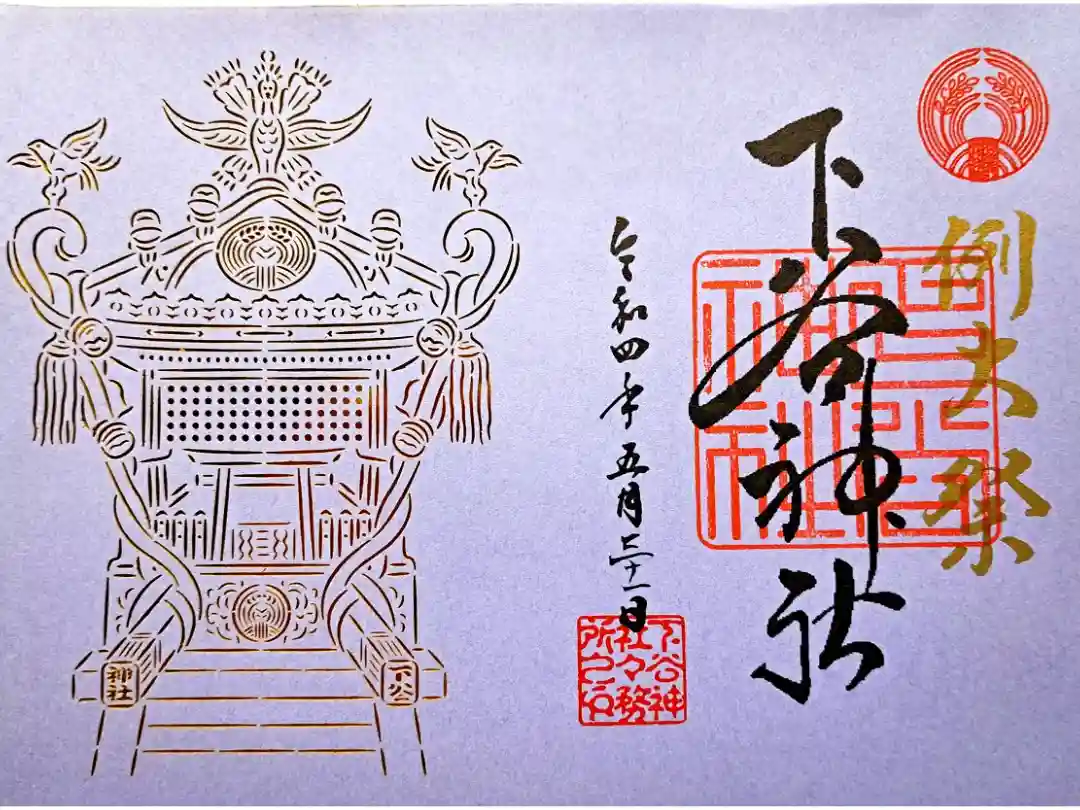 例大祭
下谷神社
下谷
神社
令和四年五月二十一日
下谷神
社々務
所之印
下谷
神社